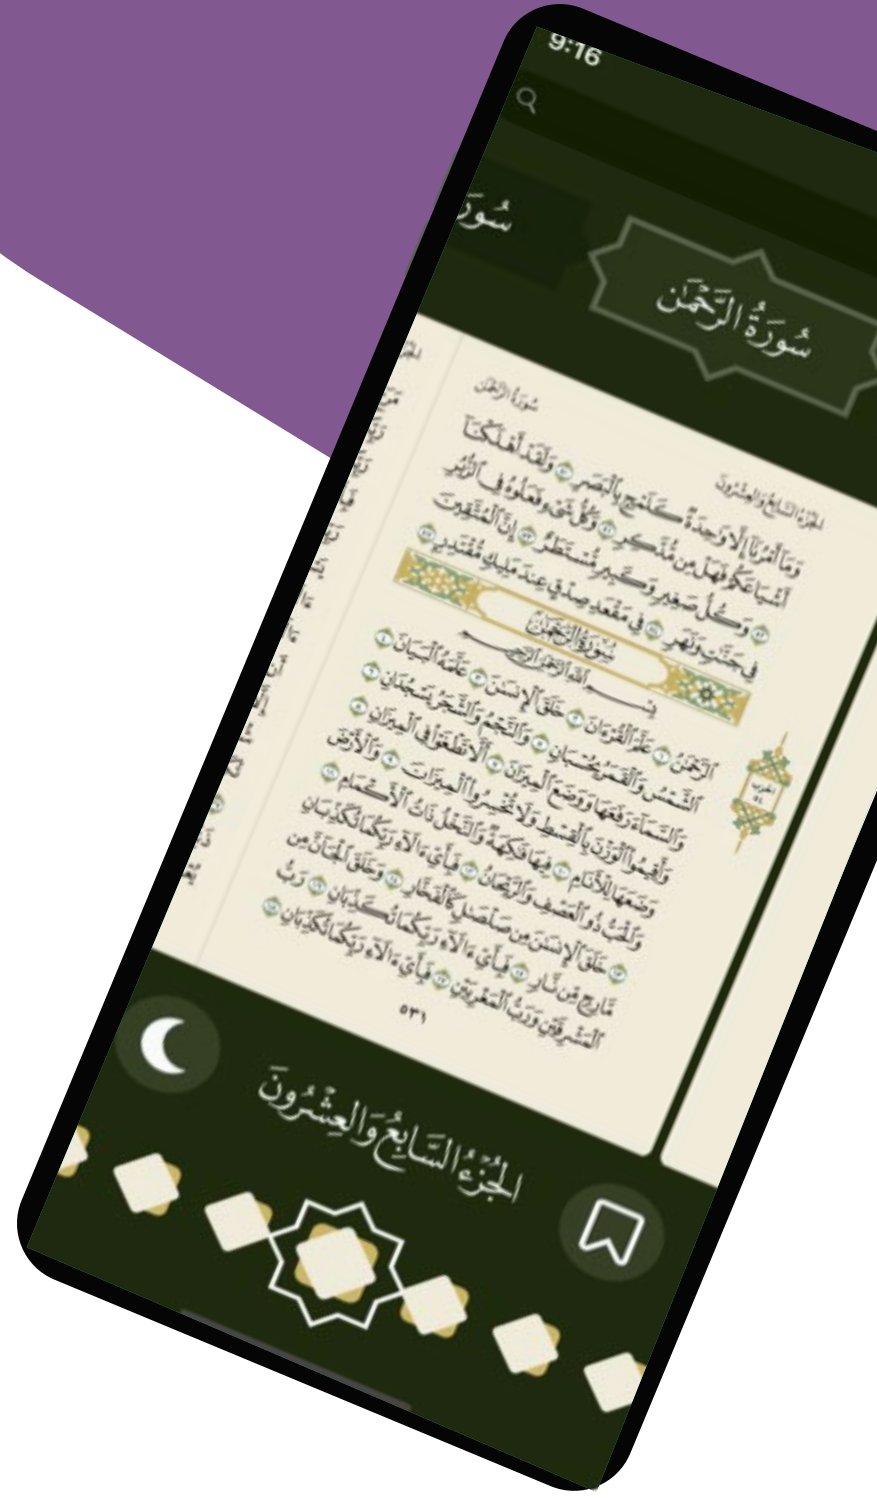 9:16
سُورَةُ الرَّحْمَٰن
سُورَةُ الرَّحْمَٰن
الجُزْءُ السَّابِعُ وَالعِشْرُونَ
وَمَآ أَمْرُنَآ إِلَّا وَٰحِدَةٌ كَلَمْحٍۭ بِٱلْبَصَرِ ٥٠ وَلَقَدْ أَهْلَكْنَآ
أَشْيَاعَكُمْ فَهَلْ مِن مُّدَّكِرٍ ٥١ وَكُلُّ شَىْءٍ فَعَلُوهُ فِى ٱلزُّبُرِ
٥٢ وَكُلُّ صَغِيرٍ وَكَبِيرٍ مُّسْتَطَرٌ ٥٣ إِنَّ ٱلْمُتَّقِينَ
فِى جَنَّٰتٍ وَنَهَرٍ ٥٤ فِى مَقْعَدِ صِدْقٍ عِندَ مَلِيكٍ مُّقْتَدِرٍۭ ٥٥
سُورَةُ الرَّحْمَٰن
بِسْمِ ٱللَّهِ ٱلرَّحْمَٰنِ ٱلرَّحِيمِ
ٱلرَّحْمَٰنُ ١ عَلَّمَ ٱلْقُرْءَانَ ٢ خَلَقَ ٱلْإِنسَٰنَ ٣ عَلَّمَهُ ٱلْبَيَانَ ٤
ٱلشَّمْسُ وَٱلْقَمَرُ بِحُسْبَانٍ ٥ وَٱلنَّجْمُ وَٱلشَّجَرُ يَسْجُدَانِ ٦
وَٱلسَّمَآءَ رَفَعَهَا وَوَضَعَ ٱلْمِيزَانَ ٧ أَلَّا تَطْغَوْا۟ فِى ٱلْمِيزَانِ ٨
وَأَقِيمُوا۟ ٱلْوَزْنَ بِٱلْقِسْطِ وَلَا تُخْسِرُوا۟ ٱلْمِيزَانَ ٩ وَٱلْأَرْضَ
وَضَعَهَا لِلْأَنَامِ ١٠ فِيهَا فَٰكِهَةٌ وَٱلنَّخْلُ ذَاتُ ٱلْأَكْمَامِ ١١
وَٱلْحَبُّ ذُو ٱلْعَصْفِ وَٱلرَّيْحَانُ ١٢ فَبِأَىِّ ءَالَآءِ رَبِّكُمَا تُكَذِّبَانِ
١٣ خَلَقَ ٱلْإِنسَٰنَ مِن صَلْصَٰلٍ كَٱلْفَخَّارِ ١٤ وَخَلَقَ ٱلْجَآنَّ مِن
مَّارِجٍ مِّن نَّارٍ ١٥ فَبِأَىِّ ءَالَآءِ رَبِّكُمَا تُكَذِّبَانِ ١٦ رَبُّ
ٱلْمَشْرِقَيْنِ وَرَبُّ ٱلْمَغْرِبَيْنِ ١٧ فَبِأَىِّ ءَالَآءِ رَبِّكُمَا تُكَذِّبَانِ ١٨
الحزب
٥٤
٥٣١
الجُزْءُ السَّابِعُ وَالعِشْرُونَ